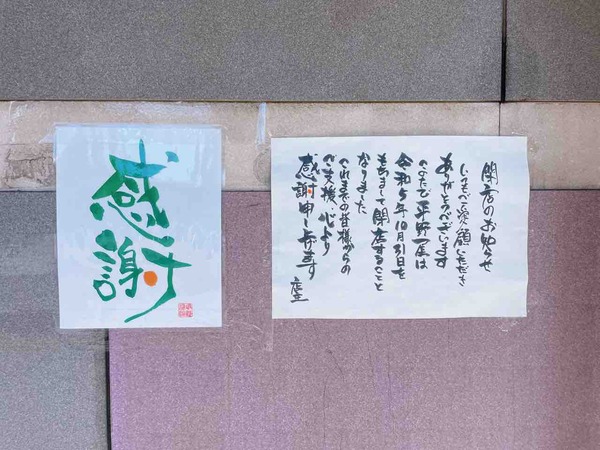 感謝
閉店のお知らせ
いつもご愛顧いただき
ありがとうございます
このたび平野屋は
令和5年10月31日を
もちまして閉店することと
なりました
これまでの皆様からの
ご支援、心より
感謝申し上げます
店主